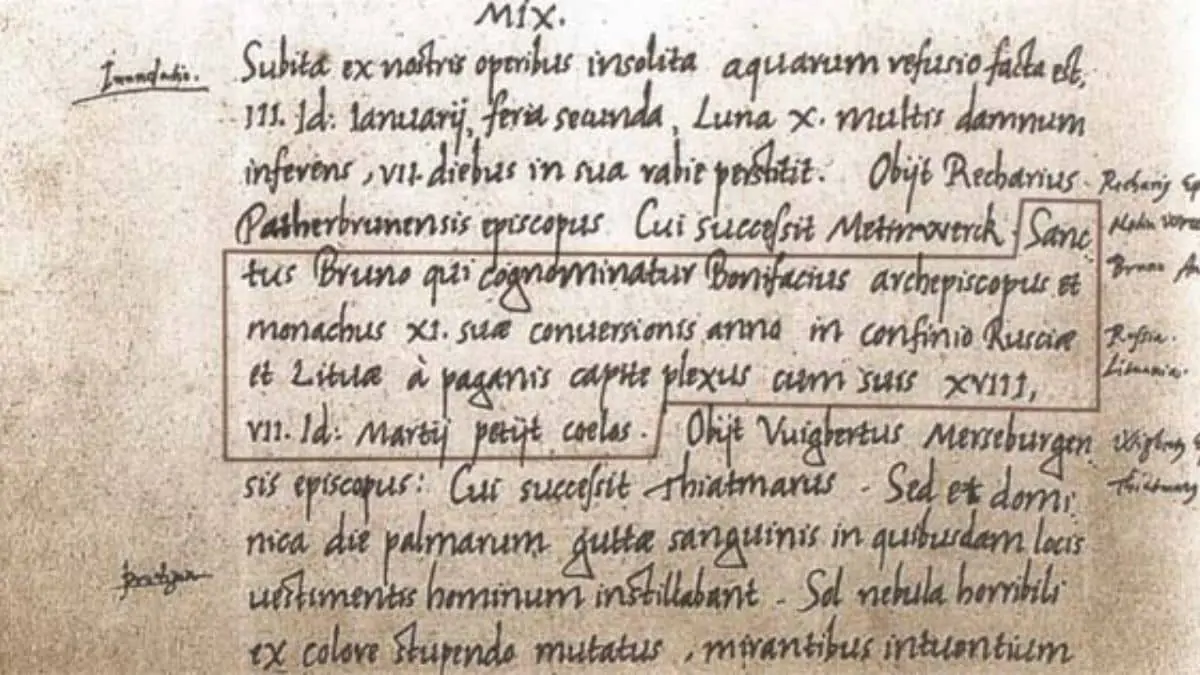 MIX.
Inundatio.
Subita ex nostris operibus insolita aquarum refusio facta est,
III. Id: Ianuarij, feria secunda, Luna X. multis damnum
inferens, VII. diebus in sua rabie perstitit. Obijt Recharius
Patherbrunensis episcopus. Cui successit Meinwerck. Sanc
tus Bruno qui cognominatur Bonifacius archepiscopus et
monachus XI. suæ conuersionis anno in confinio Rusciæ
et Lituæ à paganis capite plexus cum suis XVIII,
VII. Id: Martij petijt coelos. Obijt Vuigbertus Merseburgen
sis episcopus: Cui successit Thiatmarus. Sed et domi
nica die palmarum guttæ sanguinis in quibusdam locis
uestimentis hominum instillabant. Sol nebula horribili
ex colore stupendo mutatus, mirantibus intuentium
Bruno
Russia.
Lituania.